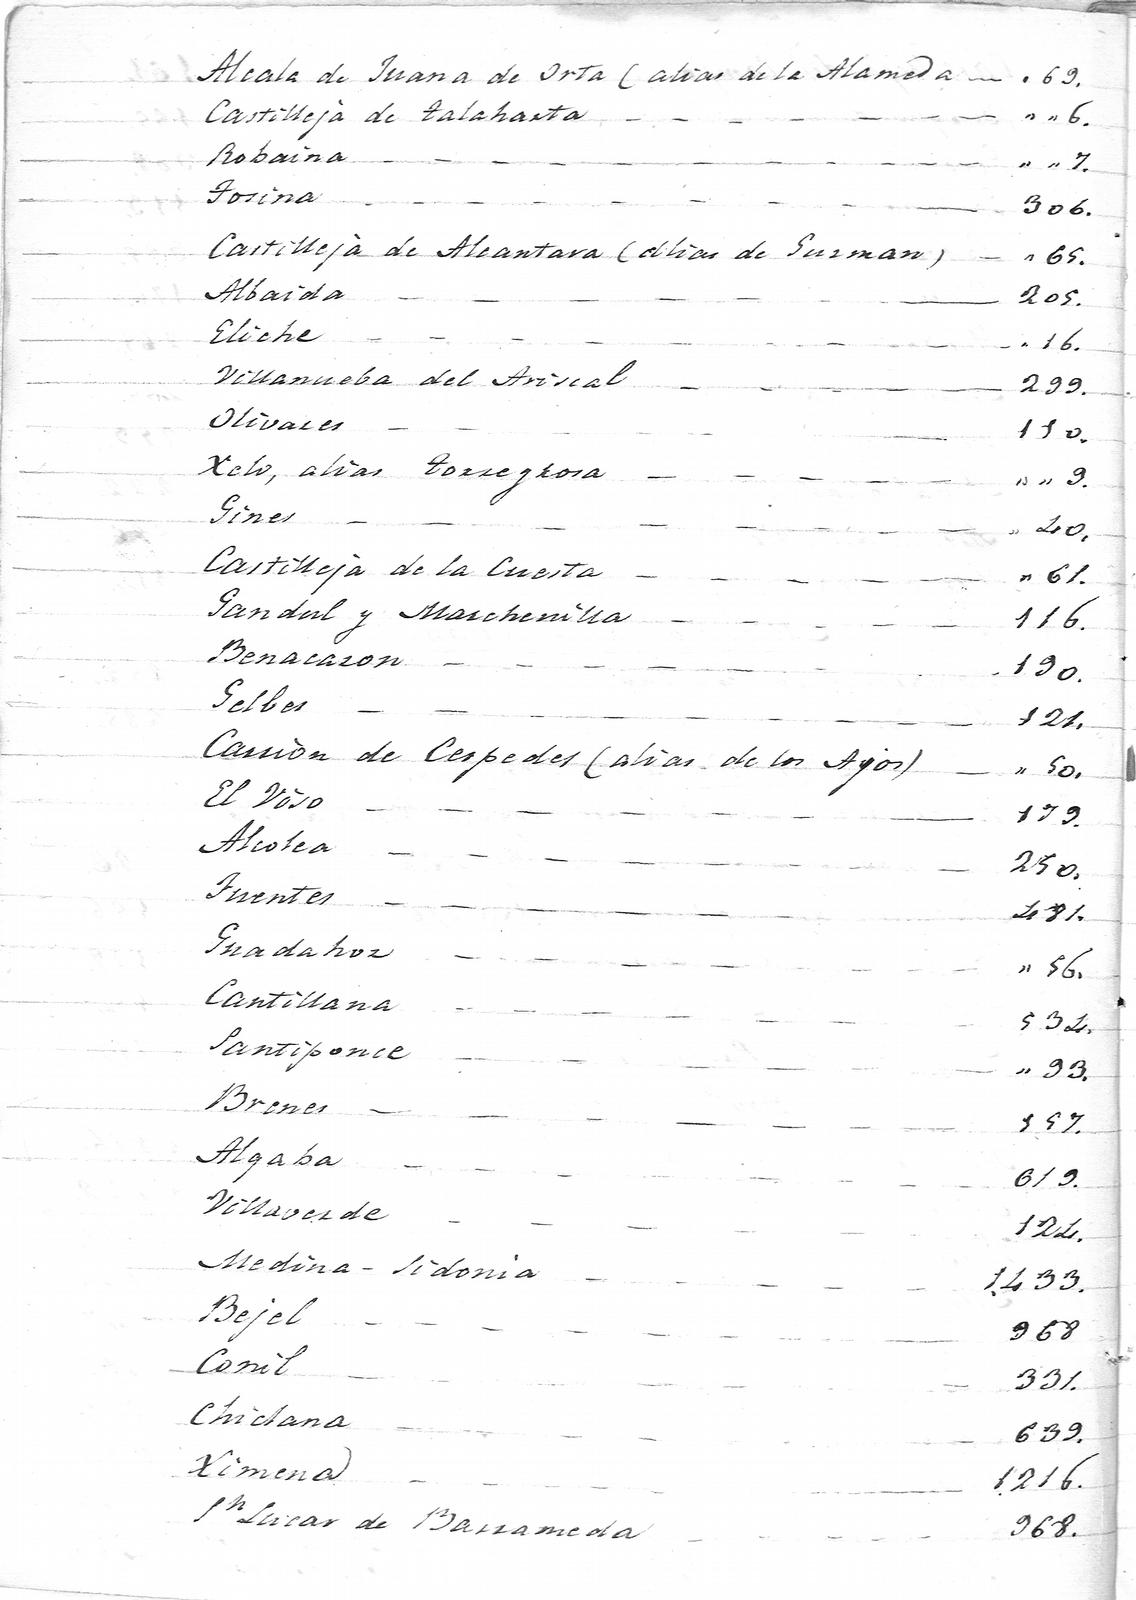 Alcala de Juana de Orta (alias de la Alameda — . 69.
Castilleja de talaharta - - - - - — „ „ 6.
Robaina - - - - - - - — „ „ 7.
tosina - - - - - - — 306.
Castilleja de Alcantara (alias de Guzman) - — „ 65.
Albaida - - - - - - — 205.
Eliche - - - - - - - - „ 16.
Villanueba del Ariscal - - - — 299.
Olivares - - - - — 110.
Xelo, alias torregrosa - - - - — „ „ 9.
Gines - - - - - - - - „ 40.
Castilleja de la Cuesta - - - - — „ 61.
Gandul y Marchenilla - - - - - 116.
Benacazon - - - - - - 190.
Gelbes - - - - - - - - 121.
Carrion de Cespedes (alias de los Ajos) — „ 50.
El Viso - - - - - - — 179.
Alcolea - - - - - - - - 250.
Fuentes - - - - - - - - 481.
Guadahoz - - - - - - - „ 56.
Cantillana - - - - - - 534.
Santiponce - - - - - - — „ 93.
Brenes - - - - - - - 157.
Algaba - - - - - - - 619.
Villaverde - - - - - - 124.
Medina-Sidonia - - - - - 1.433.
Bejel - - - - - - — 968
Conil - - - - - - - 331.
Chiclana - - - - - 639.
Ximena - - - - — 1.216.
Sn Lucar de Barrameda - - - - 968.